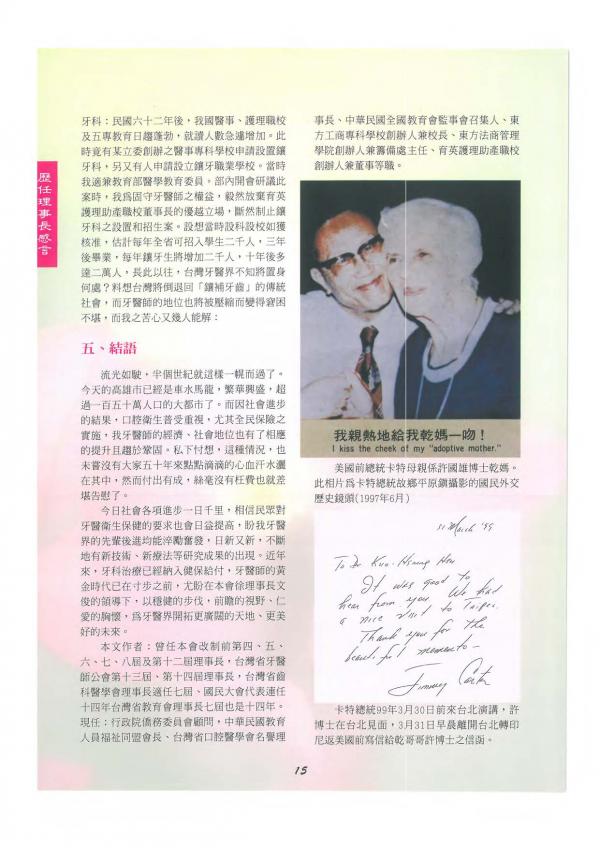 歷任理事長感言
牙科：民國六十二年後，我國醫事、護理職校
及五專教育日趨蓬勃，就讀人數急遽增加。此
時竟有某立委創辦之醫事專科學校申請設置鑲
牙科，另又有人申請設立鑲牙職業學校。當時
我適兼教育部醫學教育委員。部內開會研議此
案時，我為固守牙醫師之權益，毅然放棄育英
護理助產職校董事長的優越立場，斷然制止鑲
牙科之設置和招生案。設想當時設科設校如獲
核准，估計每年全省可招入學生二千人，三年
後畢業，每年鑲牙生將增加二千人，十年後多
達二萬人，長此以往，台灣牙醫界不知將置身
何處？料想台灣將倒退回「鑲補牙齒」的傳統
社會，而牙醫師的地位也將被壓縮而變得窘困
不堪，而我之苦心又幾人能解：
五、結語
流光如駛，半個世紀就這樣一幌而過了。
今天的高雄市已經是車水馬龍，繁華興盛，超
過一百五十萬人口的大都市了。而因社會進步
的結果，口腔衛生普受重視，尤其全民保險之
實施，我牙醫師的經濟、社會地位也有了相應
的提升且趨於鞏固。私下忖想，這種情況，也
未嘗沒有大家五十年來點點滴滴的心血汗水灑
在其中，然而付出有成，絲毫沒有枉費也就差
堪告慰了。
今日社會各項進步一日千里，相信民眾對
牙醫衛生保健的要求也會日益提高，盼我牙醫
界的先輩後進均能淬勵奮發，日新又新，不斷
地有新技術、新療法等研究成果的出現。近年
來，牙科治療已經納入健保給付，牙醫師的黃
金時代已在寸步之前，尤盼在本會徐理事長文
俊的領導下，以穩健的步伐，前瞻的視野、仁
愛的胸懷，為牙醫界開拓更廣闊的天地、更美
好的未來。
本文作者：曾任本會改制前第四、五、
六、七、八屆及第十二屆理事長，台灣省牙醫
師公會第十三屆、第十四屆理事長，台灣省齒
科醫學會理事長適任七屆、國民大會代表連任
十四年台灣省教育會理事長七屆也是十四年。
現任：行政院僑務委員會顧問，中華民國教育
人員福祉同盟會長、台灣省口腔醫學會名譽理
事長、中華民國全國教育會監事會召集人、東
方工商專科學校創辦人兼校長、東方法商管理
學院創辦人兼籌備處主任、育英護理助產職校
創辦人兼董事等職。
我親熱地給我乾媽一吻！
I kiss the cheek of my "adoptive mother."
美國前總統卡特母親係許國雄博士乾媽。
此相片為卡特總統故鄉平原鎮攝影的國民外交
歷史鏡頭(1997年6月)
31 March '99
To Dr. Kuo-Hsiung Hsu
It was good to
hear from you. We had
a nice visit to Taipei.
Thank you for the
beautiful memento-
Jimmy Carter
卡特總統99年3月30日前來台北演講，許
博士在台北見面，3月31日早晨離開台北轉印
尼返美國前寫信給乾哥哥許博士之信函。
15